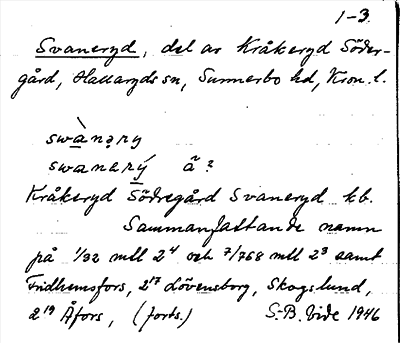 1-3.
Svaneryd, del av Kråkeryd Söder-
gård, Hallaryds sn, Sunnerbo hd, Kron. l.
swànəry
swanerý ã?
Kråkeryd Södregård Svaneryd kb.
Sammanfattande namn
på 1/32 mtl 2⁴ och 7/768 mtl 2³ samt
Fridhemsfors, 2¹⁷ Lövensborg, Skogslund,
2¹⁹ Åfors, (forts.) S.-B. Vide 1946